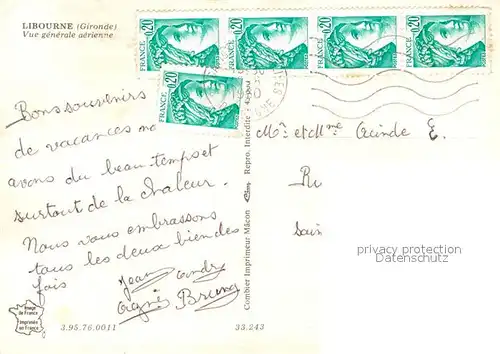 LIBOURNE (Gironde)
Vue générale aérienne
0,20 FRANCE
0,20 FRANCE
0,20 FRANCE
0,20 FRANCE
0,20 FRANCE
Bons souvenirs
de vacances
avons du beau temps et
surtout de la chaleur.
Nous vous embrassons
tous les deux bien des
fois
Jean
Agnès Bruno
Image
de France
Imprimée
en France
3.95.76.0011
33.243
Combier Imprimeur Mâcon
Repro. Interdite
Mr et Mme
privacy protection
Datenschutz